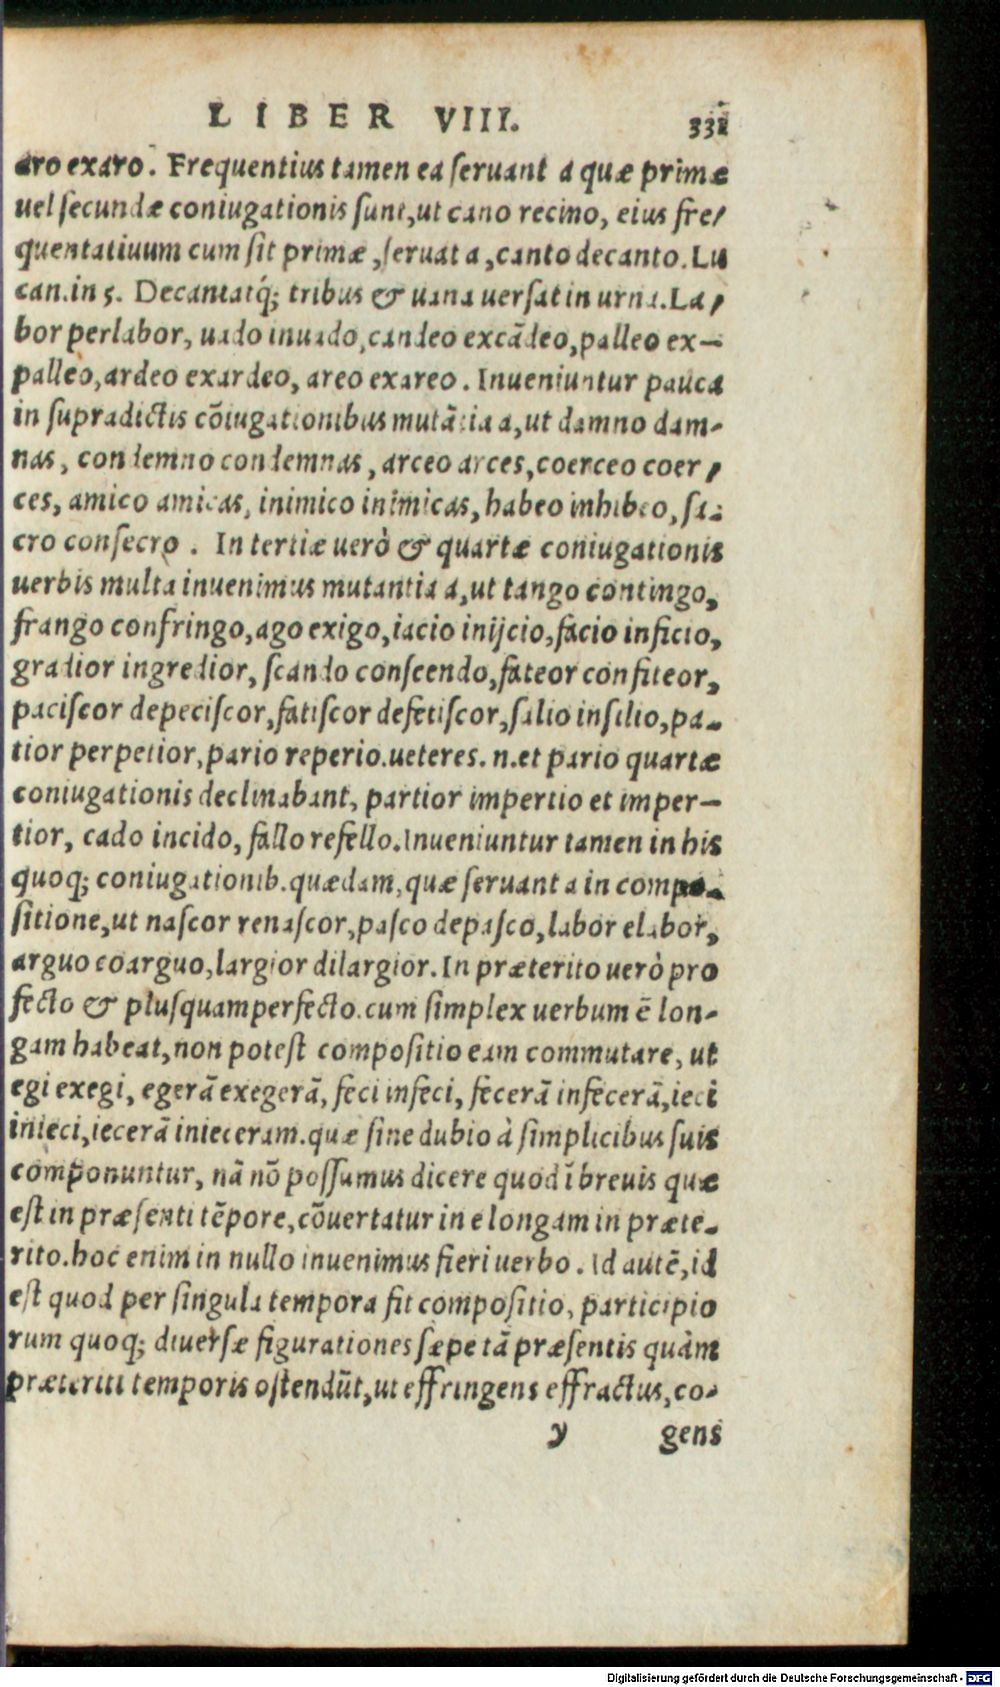 LIBER VIII. 331
aro exaro. Frequentius tamen ea ſeruant a quæ primæ
uel ſecundæ coniugationis ſunt, ut cano recino, eius fre/
quentatiuum cum ſit primæ, ſeruat a, canto decanto. Lu
can. in 5. Decantatq́; tribus & uana uerſat in urna. La/
bor perlabor, uado inuado, candeo excādeo, palleo ex-
palleo, ardeo exardeo, areo exareo. Inueniuntur pauca
in ſupradictis cōiugationibus mutātia a, ut damno dam-
nas, condemno condemnas, arceo arces, coerceo coer/
ces, amico amicas, inimico inimicas, habeo inhibeo, ſa-
cro conſecro. In tertiæ uerò & quartæ coniugationis
uerbis multa inuenimus mutantia a, ut tango contingo,
frango confringo, ago exigo, iacio inijcio, facio inficio,
gradior ingredior, ſcando conſcendo, fateor confiteor,
paciſcor depeciſcor, fatiſcor defetiſcor, ſalio inſilio, pa-
tior perpetior, pario reperio. ueteres. n. et pario quartæ
coniugationis declinabant, partior impertio et imper-
tior, cado incido, fallo refello. Inueniuntur tamen in his
quoq; coniugationib. quædam, quæ ſeruant a in compo-
ſitione, ut naſcor renaſcor, paſco depaſco, labor elabor,
arguo coarguo, largior dilargior. In præterito uerò pro
fecto & pluſquamperfecto. cum ſimplex uerbum ē lon-
gam habeat, non poteſt compoſitio eam commutare, ut
egi exegi, egerā exegerā, feci infeci, fecerā infecerā, ieci
inieci, iecerā inieceram. quæ ſine dubio à ſimplicibus ſuis
componuntur, nā nō poſſumus dicere quod ī breuis quæ
eſt in præſenti tēpore, cōuertatur in e longam in præte-
rito. hoc enim in nullo inuenimus fieri uerbo. Id autē, id
eſt quod per ſingula tempora fit compoſitio, participio
rum quoq; diuerſæ figurationes ſæpe tā præſentis quàm
præteriti temporis oſtendūt, ut effringens effractus, co-
y gens
Digitalisierung gefördert durch die Deutsche Forschungsgemeinschaft - DFG